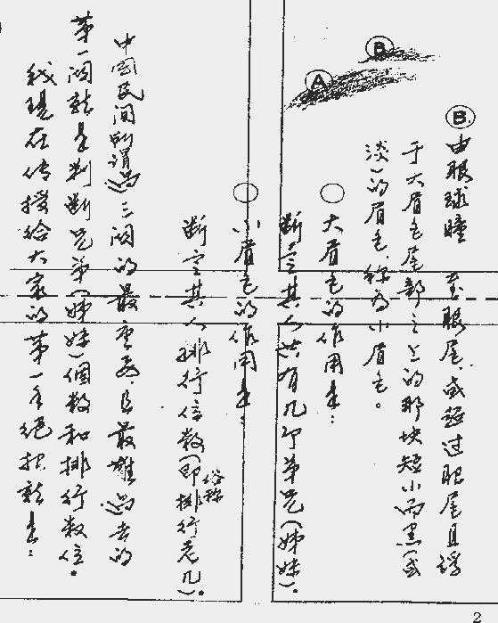 Ⓑ
Ⓐ
Ⓑ 由眼球瞳 至眼尾,或超过眼尾且浮
于大眉毛尾部之上的那块短小而黑(或
淡)的眉毛,称为小眉毛。
○ 大眉毛的作用是:
断定其人共有几个弟兄(姊妹)。
○ 小眉毛的作用是:
断定其人排行位数(即俗称排行老几)。
中国民间所谓过三关的最重要,且最难过去的
第一关就是判断兄弟(姊妹)个数和排行数位。
我现在传授给大家的第一个绝招就是:
2